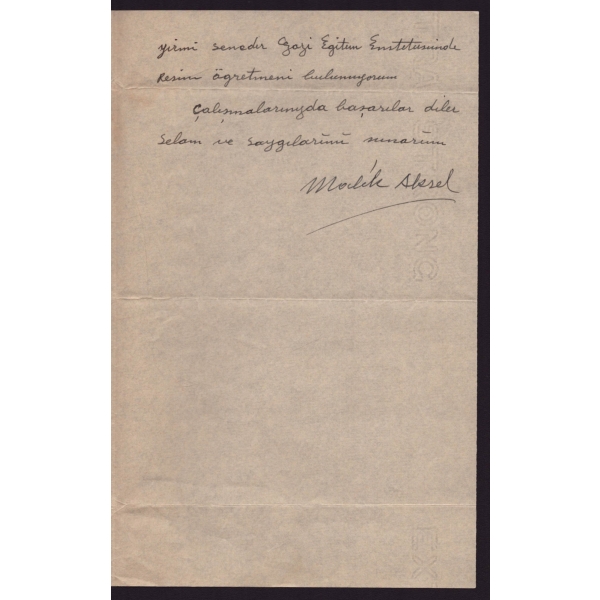 yirmi senedir Gazi Egitim Enstitüsünde
Resim öğretmeni bulunuyorum
Çalışmalarınızda başarılar diler
selam ve saygılarımı sunarım
Malik Aksel
EX